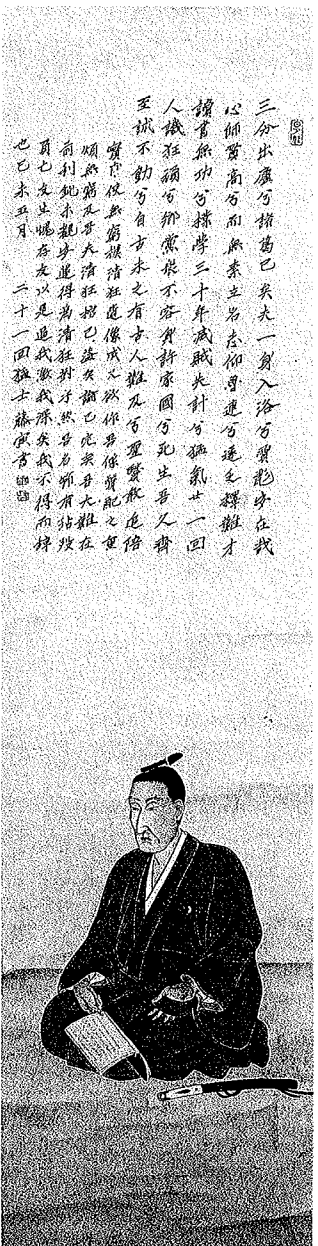 三分出廬兮諸葛已矣夫一身入洛兮賈彪安在哉
心師貫高兮而無素立名志仰魯連兮遂乏釋難才
讀書無功兮樸學三十年滅賊失計兮猛氣廿一回
人譏狂頑兮鄉黨衆不容身許家國兮死生吾久齊
至誠不動兮自古未之有古人難及兮聖賢敢追陪
使無窮摸清狂道像成又欲作吾像
煩無窮及吾夫清狂已矣吾大難在
前利鈍未覩安遑得為清狂對然吾名
友以是追我激我深矣我不得而辞
也己未五月 二十一回猛士藤寅書